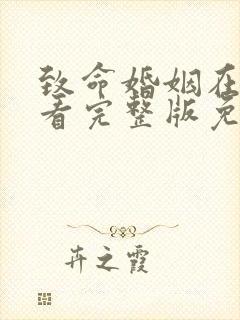 致命婚姻在
看完整版免
卉之霞